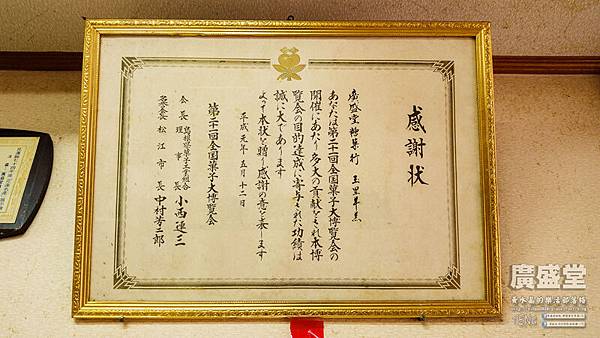 感謝状
廣盛堂糖菓行
あなたは第二十一回全国菓子大博覧会の
開催にあたり多大の貢献をされ本博
覧会の目的達成に寄与された功績は
誠に大であります
よって本状を贈り感謝の意を表します
平成元年五月十二日
第二十一回全国菓子大博覧会
会長 島根県菓子工業組合理事長 小西進三
松江市長 中村芳二郎
廣盛堂